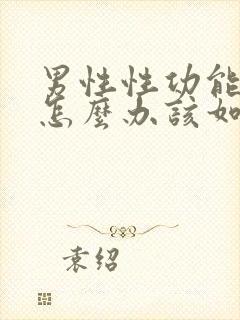 男性性功能
怎麼办該如
袁绍